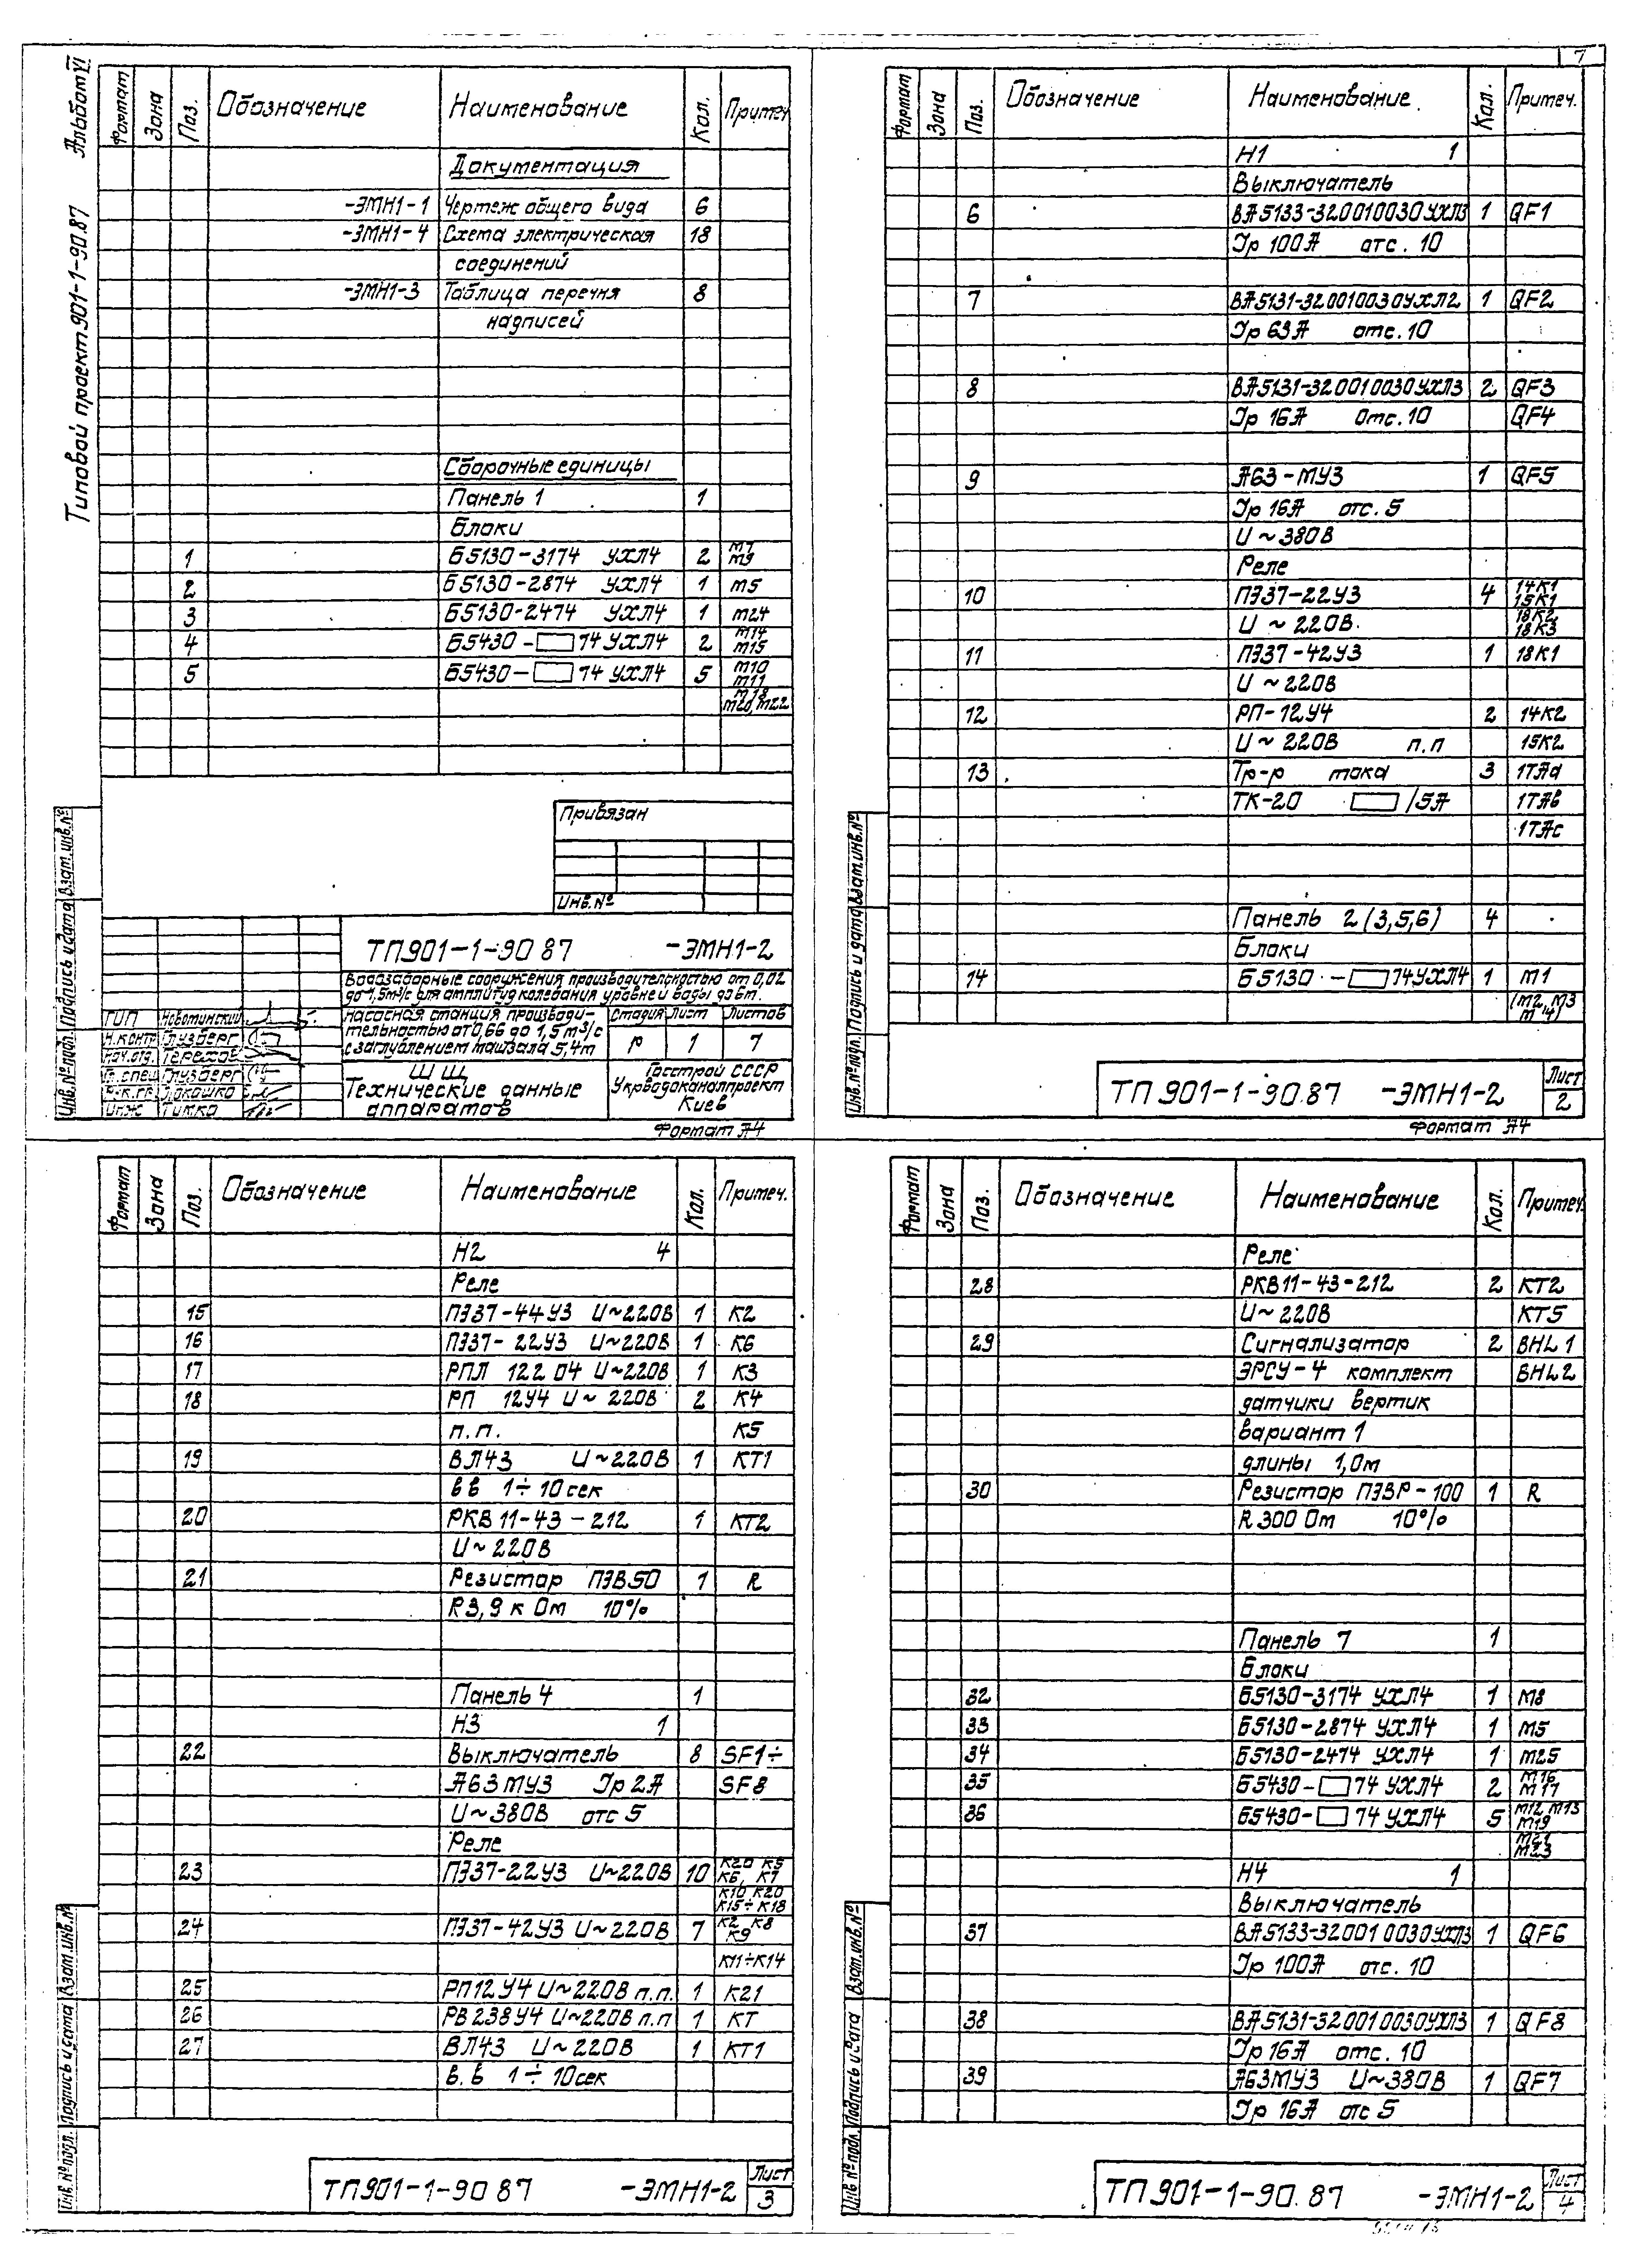 7
Альбом VI
Типовой проект 901-1-90.87
Формат Зона Поз. Обозначение Наименование Кол. Примеч.
Документация
-ЭМН1-1 Чертеж общего вида 6
-ЭМН1-4 Схема электрическая 18
соединений
-ЭМН1-3 Таблица перечня 8
надписей
Сборочные единицы
Панель 1 1
Блоки
1 Б5130-3174 УХЛ4 2 М7
М9
2 Б5130-2874 УХЛ4 1 М5
3 Б5130-2474 УХЛ4 1 М24
4 Б5430-▭74 УХЛ4 2 М14
М15
5 Б5430-▭74 УХЛ4 5 М10
М11
М18
М20, М22
Привязан
Инв.№
ТП.901-1-90 87 -ЭМН1-2
Водозаборные сооружения производительностью от 0,02
до 1,5м³/с для амплитуд колебания уровней воды до 6м.
ГИП Новотинский
Н.контр Глузберг
Нач.отд. Терехов
Гл.спец Глузберг
Рук.гр.
Инж Тимко
Насосная станция производи-
тельностью от 0,66 до 1,5м³/с
с заглублением машзала 5,4м
Стадия Лист Листов
Р 1 7
ШЩ
Технические данные
аппаратов
Госстрой СССР
Укрводоканалпроект
Киев
Инв.№подл. Подпись и дата Взат.инв.№
Формат А4
Формат Зона Поз. Обозначение Наименование Кол. Примеч.
Н1 1
Выключатель
6 ВА5133-320010030УХЛ3 1 QF1
Jр 100А отс. 10
7 ВА5131-320010030УХЛ2 1 QF2
Jр 63А отс. 10
8 ВА5131-320010030УХЛ3 2 QF3
Jр 16А отс. 10 QF4
9 А63-МУ3 1 QF5
Jр 16А отс. 5
U ~ 380В
Реле
10 ПЭ37-22У3 4 14К1
15К1
U ~ 220В. 18К2
18К3
11 ПЭ37-42У3 1 18К1
U ~ 220В
12 РП-12У4 2 14К2
U ~ 220В п.п 15К2
13 Тр-р тока 3 1ТАа
ТК-20 ▭/5А 1ТАв
1ТАс
Панель 2 (3,5,6) 4
Блоки
14 Б5130 -▭74УХЛ4 1 М1
(М2, М3
М4)
Инв.№подл. Подпись и дата Взат.инв.№
ТП.901-1-90.87 -ЭМН1-2
Лист
2
Формат А4
Формат Зона Поз. Обозначение Наименование Кол. Примеч.
Н2 4
Реле
15 ПЭ37-44У3 U~220В 1 К2
16 ПЭ37-22У3 U~220В 1 К6
17 РПЛ 122 04 U~220В 1 К3
18 РП 12У4 U~ 220В 2 К4
п.п. К5
19 ВЛ43 U~220В 1 КТ1
вв 1÷10сек
20 РКВ 11-43-212 1 КТ2
U~220В
21 Резистор ПЭВ50 1 R
R3,9 к Ом 10%
Панель 4 1
Н3 1
22 Выключатель 8 SF1÷
А63МУ3 Jр 2А SF8
U~380В отс 5
Реле
23 ПЭ37-22У3 U~220В 10 К20 К5
К6, К7
К10 К20
К15÷К18
24 ПЭ37-42У3 U~220В 7 К2, К8
К9
К11÷К14
25 РП12У4 U~220В п.п. 1 К21
26 РВ238У4 U~220В п.п 1 КТ
27 ВЛ43 U~220В 1 КТ1
в.в 1÷10сек
Инв.№подл. Подпись и дата Взат.инв.№
ТП.901-1-90 87 -ЭМН1-2
Лист
3
Формат Зона Поз. Обозначение Наименование Кол. Примеч.
Реле
28 РКВ11-43-212 2 КТ2
U~220В КТ5
29 Сигнализатор 2 BHL1
ЭРСУ-4 комплект BHL2
датчики вертик
вариант 1
длины 1,0м
30 Резистор ПЭВР-100 1 R
R300 Ом 10%
Панель 7 1
Блоки
32 Б5130-3174 УХЛ4 1 М8
33 Б5130-2874 УХЛ4 1 М5
34 Б5130-2474 УХЛ4 1 М25
35 Б5430-▭74 УХЛ4 2 М16
М17
36 Б5430-▭74 УХЛ4 5 М12 М13
М19
М21
М23
Н4 1
Выключатель
37 ВА5133-320010030УХЛ3 1 QF6
Jр 100А отс. 10
38 ВА5131-320010030УХЛ3 1 QF8
Jр 16А отс. 10
39 А63МУ3 U~380В 1 QF7
Jр 16А отс 5
Инв №подл. Подпись и дата Взат.инв.№
ТП.901-1-90.87 -ЭМН1-2
Лист
4